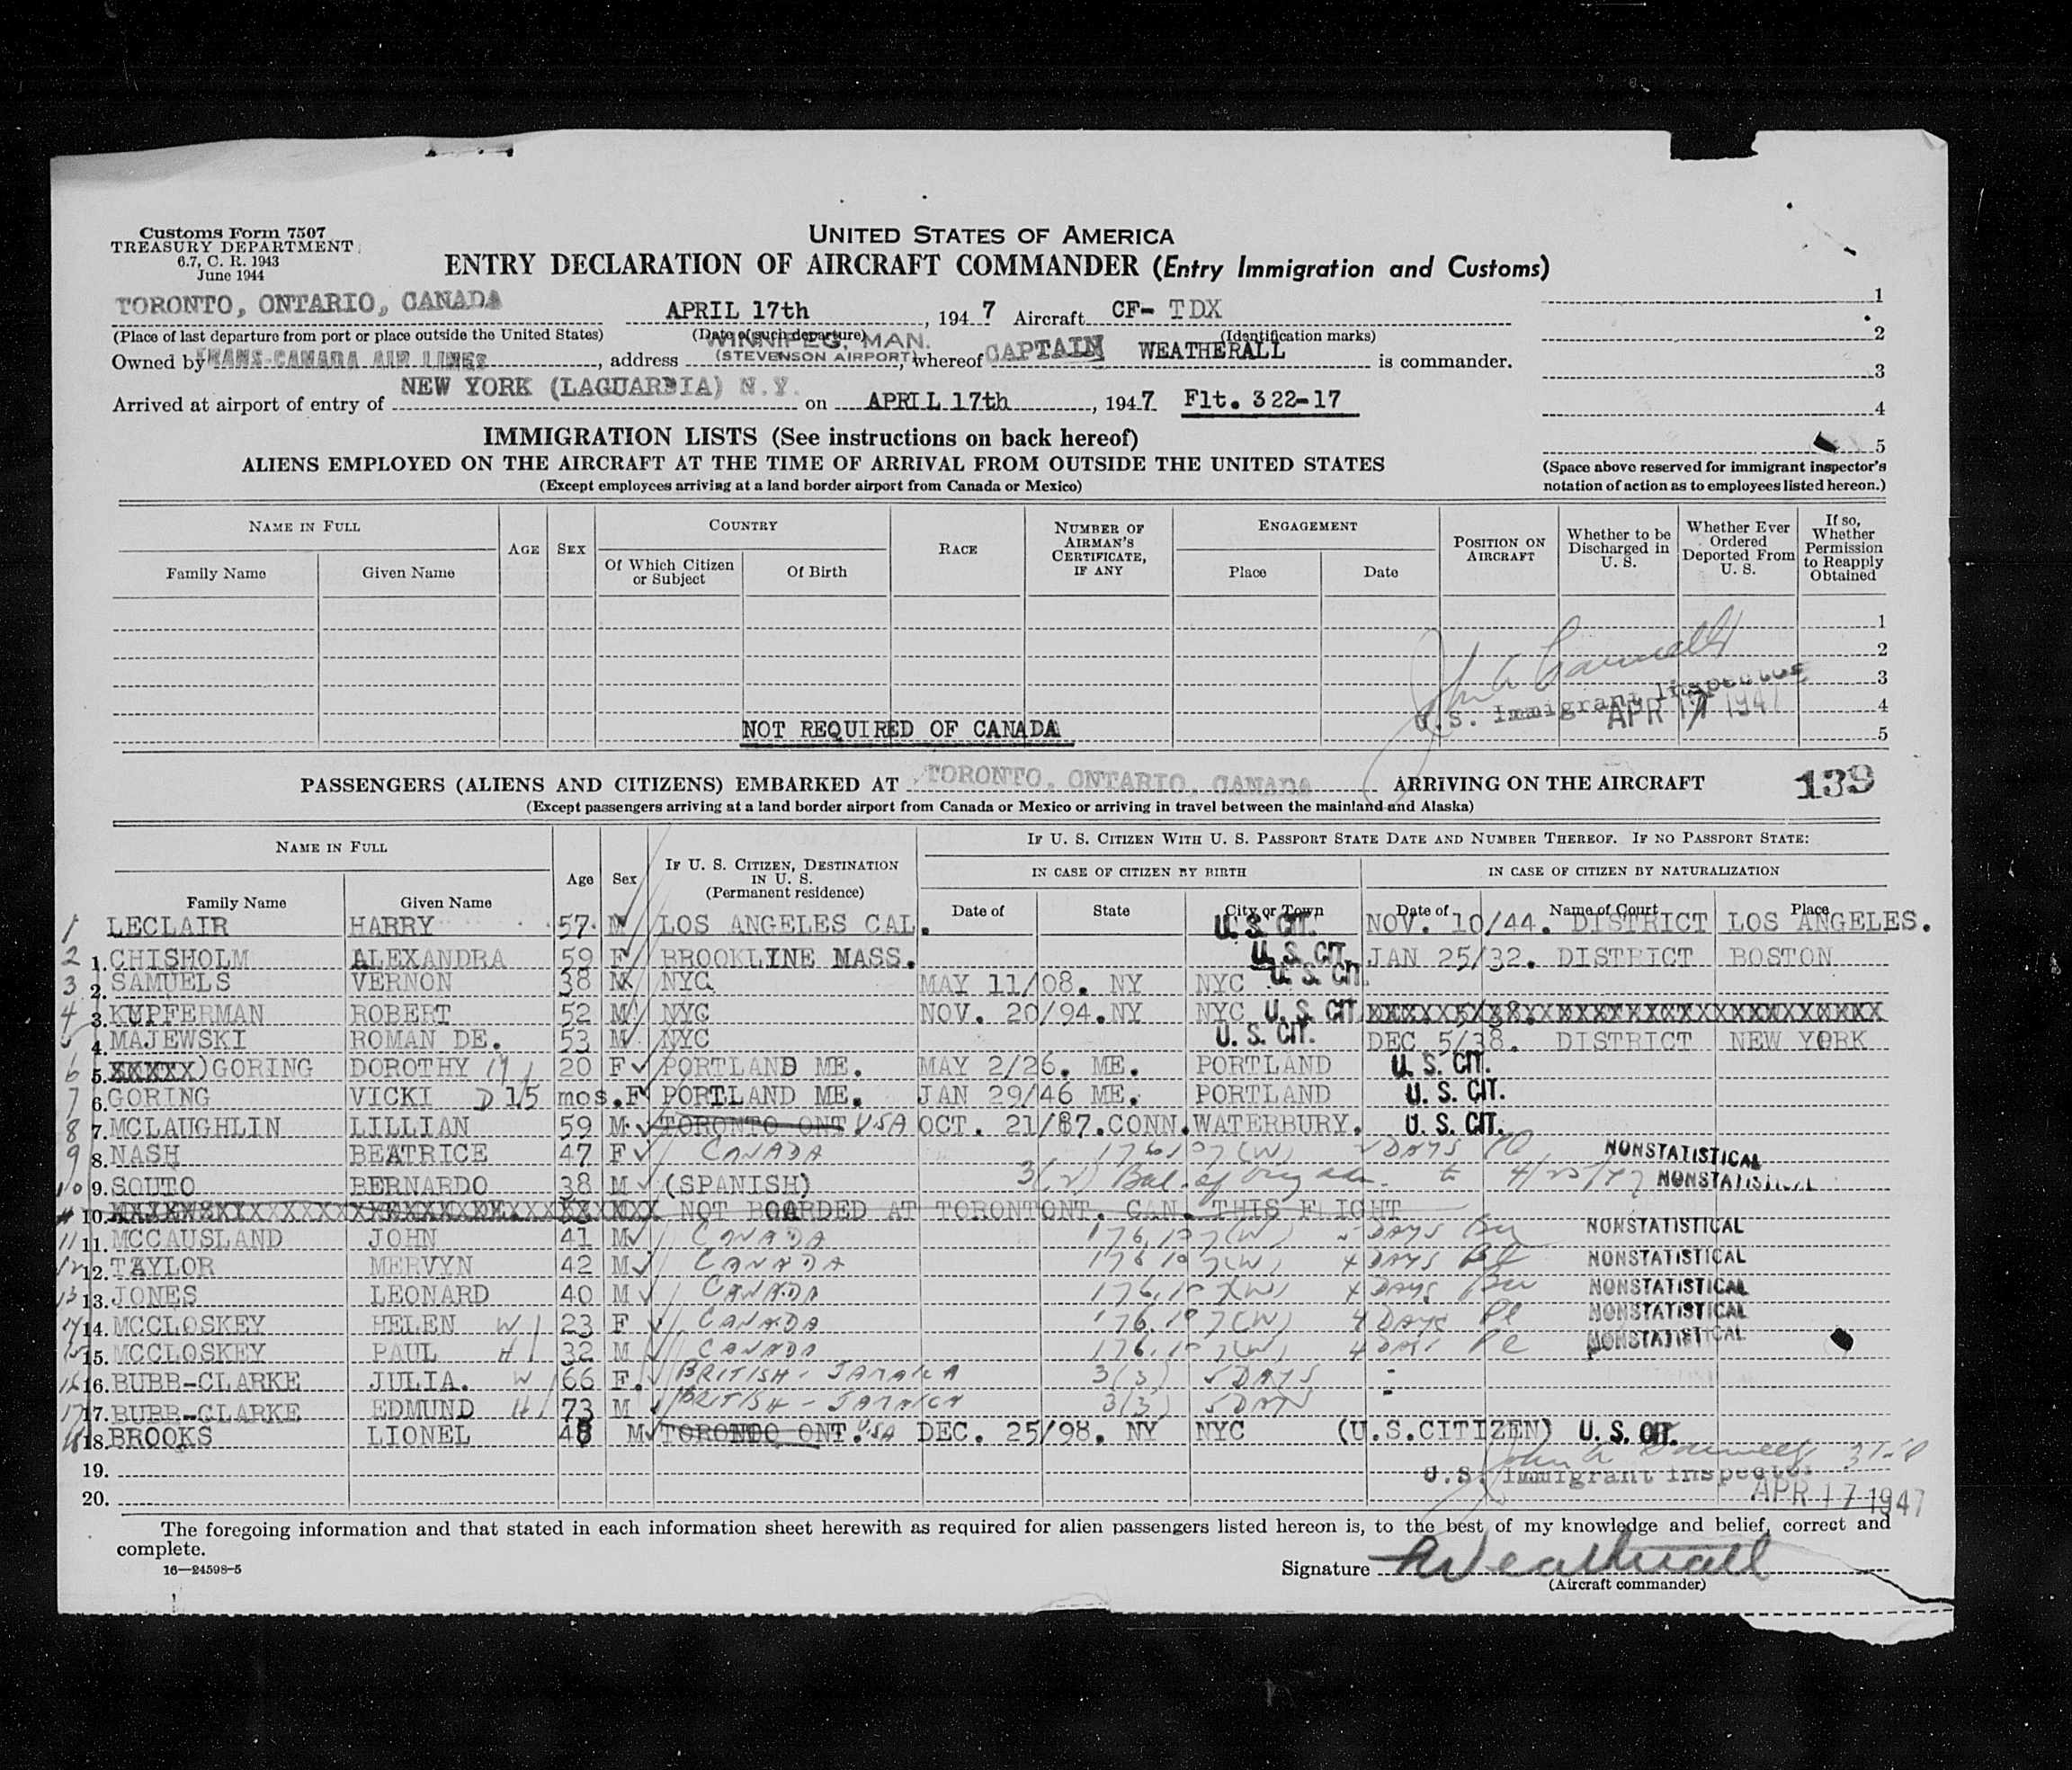 Customs Form 7507
TREASURY DEPARTMENT
6.7, C. R. 1943
June 1944
UNITED STATES OF AMERICA
ENTRY DECLARATION OF AIRCRAFT COMMANDER (Entry Immigration and Customs)
TORONTO, ONTARIO, CANADA APRIL 17th, 1947 Aircraft CF- TDX
(Place of last departure from port or place outside the United States) (Date of such departure) (Identification marks)
WINNIPEG, MAN.
Owned by TRANS-CANADA AIR LINES, address (STEVENSON AIRPORT), whereof CAPTAIN WEATHERALL is commander.
Arrived at airport of entry of NEW YORK (LAGUARDIA) N.Y. on APRIL 17th, 1947 Flt. 322-17
1
2
3
4
5
(Space above reserved for immigrant inspector's notation of action as to employees listed hereon.)
IMMIGRATION LISTS (See instructions on back hereof)
ALIENS EMPLOYED ON THE AIRCRAFT AT THE TIME OF ARRIVAL FROM OUTSIDE THE UNITED STATES
(Except employees arriving at a land border airport from Canada or Mexico)
NAME IN FULL AGE SEX COUNTRY RACE NUMBER OF AIRMAN'S CERTIFICATE, IF ANY ENGAGEMENT POSITION ON AIRCRAFT Whether to be Discharged in U. S. Whether Ever Ordered Deported From U. S. If so, Whether Permission to Reapply Obtained
Family Name Given Name Of Which Citizen or Subject Of Birth Place Date
1
2
3
4
5
U.S. Immigrant Inspector
APR 17 1947
NOT REQUIRED OF CANADA
PASSENGERS (ALIENS AND CITIZENS) EMBARKED AT TORONTO, ONTARIO, CANADA ARRIVING ON THE AIRCRAFT 139
(Except passengers arriving at a land border airport from Canada or Mexico or arriving in travel between the mainland and Alaska)
NAME IN FULL Age Sex IF U. S. CITIZEN, DESTINATION IN U. S. (Permanent residence) IF U. S. CITIZEN WITH U. S. PASSPORT STATE DATE AND NUMBER THEREOF. IF NO PASSPORT STATE:
IN CASE OF CITIZEN BY BIRTH IN CASE OF CITIZEN BY NATURALIZATION
Family Name Given Name Date of State City or Town Date of Name of Court Place
1 LECLAIR HARRY 57 M LOS ANGELES CAL. U. S. CIT. NOV. 10/44. DISTRICT LOS ANGELES.
2 1. CHISHOLM ALEXANDRA 59 F BROOKLINE MASS. U. S. CIT. JAN 25/32. DISTRICT BOSTON
3 2. SAMUELS VERNON 38 M NYC MAY 11/08. NY NYC U. S. CIT.
4 3. KUPFERMAN ROBERT 52 M NYC NOV. 20/94. NY NYC U. S. CIT.
5 4. MAJEWSKI ROMAN DE. 53 M NYC U. S. CIT. DEC 5/38. DISTRICT NEW YORK
6 5. XXXXX)GORING DOROTHY 20 F PORTLAND ME. MAY 2/26. ME. PORTLAND U. S. CIT.
7 6. GORING VICKI D 15 mos. F PORTLAND ME. JAN 29/46 ME. PORTLAND U. S. CIT.
8 7. MCLAUGHLIN LILLIAN 59 M TORONTO ONT USA OCT. 21/87. CONN. WATERBURY. U. S. CIT.
9 8. NASH BEATRICE 47 F CANADA DAYS NONSTATISTICAL
10 9. SOUTO BERNARDO 38 M (SPANISH) NONSTATISTICAL
10. NOT BOARDED AT TORONTONT. CAN. THIS FLIGHT
11 11. MCCAUSLAND JOHN 41 M CANADA DAYS NONSTATISTICAL
12 12. TAYLOR MERVYN 42 M CANADA 4 DAYS NONSTATISTICAL
13 13. JONES LEONARD 40 M CANADA 4 DAYS NONSTATISTICAL
14 14. MCCLOSKEY HELEN W 23 F CANADA 4 DAYS NONSTATISTICAL
15 15. MCCLOSKEY PAUL H 32 M CANADA 4 DAYS NONSTATISTICAL
16 16. BUBB-CLARKE JULIA. W 66 F. BRITISH - JAMAICA 3(3) 5 DAYS
17 17. BUBB-CLARKE EDMUND H 73 M BRITISH - JAMAICA 3(3) 5 DAYS
18 18. BROOKS LIONEL 48 M TORONTO ONT. USA DEC. 25/98. NY NYC (U.S.CITIZEN) U. S. CIT.
19.
20.
U.S. Immigrant Inspector
APR 17 1947
The foregoing information and that stated in each information sheet herewith as required for alien passengers listed hereon is, to the best of my knowledge and belief, correct and complete.
16—24598-5
Signature Weatherall
(Aircraft commander)